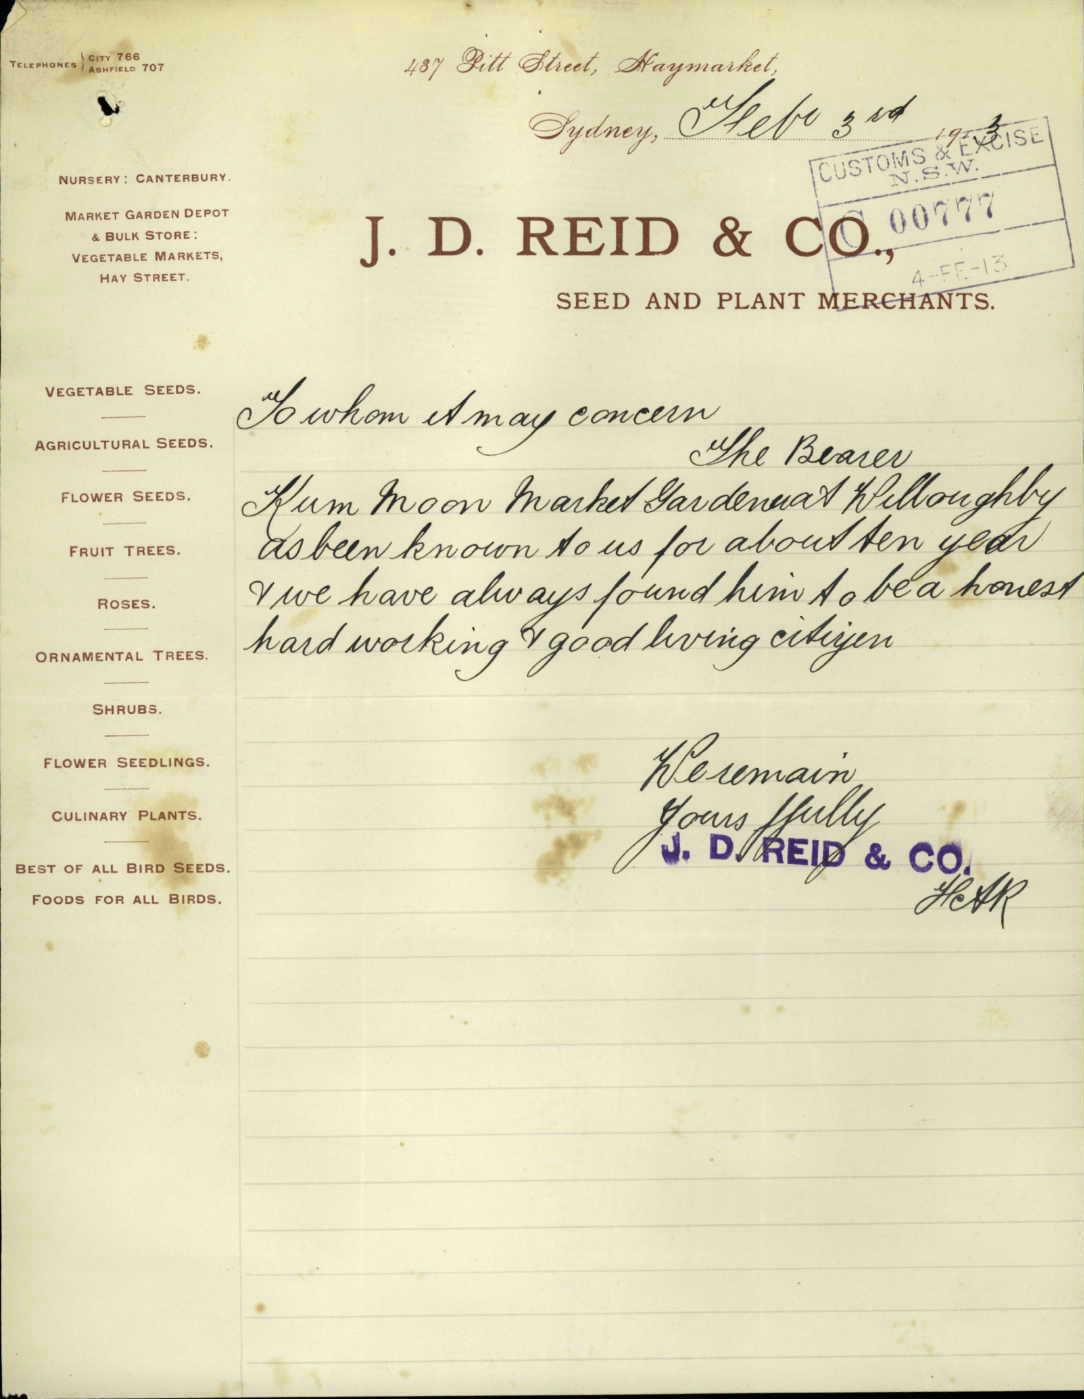 TELEPHONES { CITY 766
ASHFIELD 707
437 Pitt Street, Haymarket,
Sydney, Feb 3rd 1913
CUSTOMS & EXCISE
N.S.W.
C 00777
4-FE-13
NURSERY: CANTERBURY.
MARKET GARDEN DEPOT
& BULK STORE:
VEGETABLE MARKETS,
HAY STREET.
J. D. REID & CO.,
SEED AND PLANT MERCHANTS.
VEGETABLE SEEDS.
AGRICULTURAL SEEDS.
FLOWER SEEDS.
FRUIT TREES.
ROSES.
ORNAMENTAL TREES.
SHRUBS.
FLOWER SEEDLINGS.
CULINARY PLANTS.
BEST OF ALL BIRD SEEDS.
FOODS FOR ALL BIRDS.
To whom it may concern
The Bearer
Kum Moon Market Gardener at Willoughby
as been known to us for about ten year
& we have always found him to be a honest
hard working & good living citizen
We remain
Yours ffully
J. D. REID & CO.
HAR